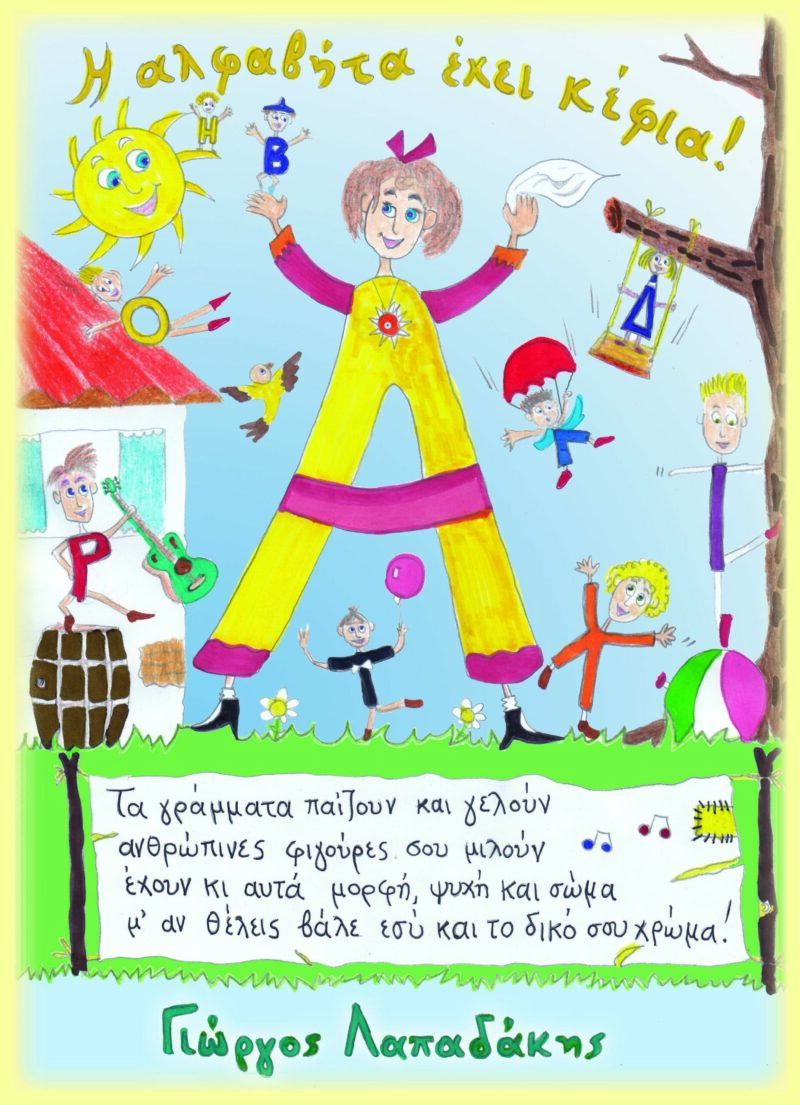 Η αλφαβήτα έχει κέφια!
Η
Β
Ο
Δ
Α
Ρ
Τα γράμματα παίζουν και γελούν
ανθρώπινες φιγούρες σου μιλούν
έχουν κι αυτά μορφή, ψυχή και σώμα
μ' αν θέλεις βάλε εσύ και το δικό σου χρώμα!
Γιώργος Λαπαδάκης